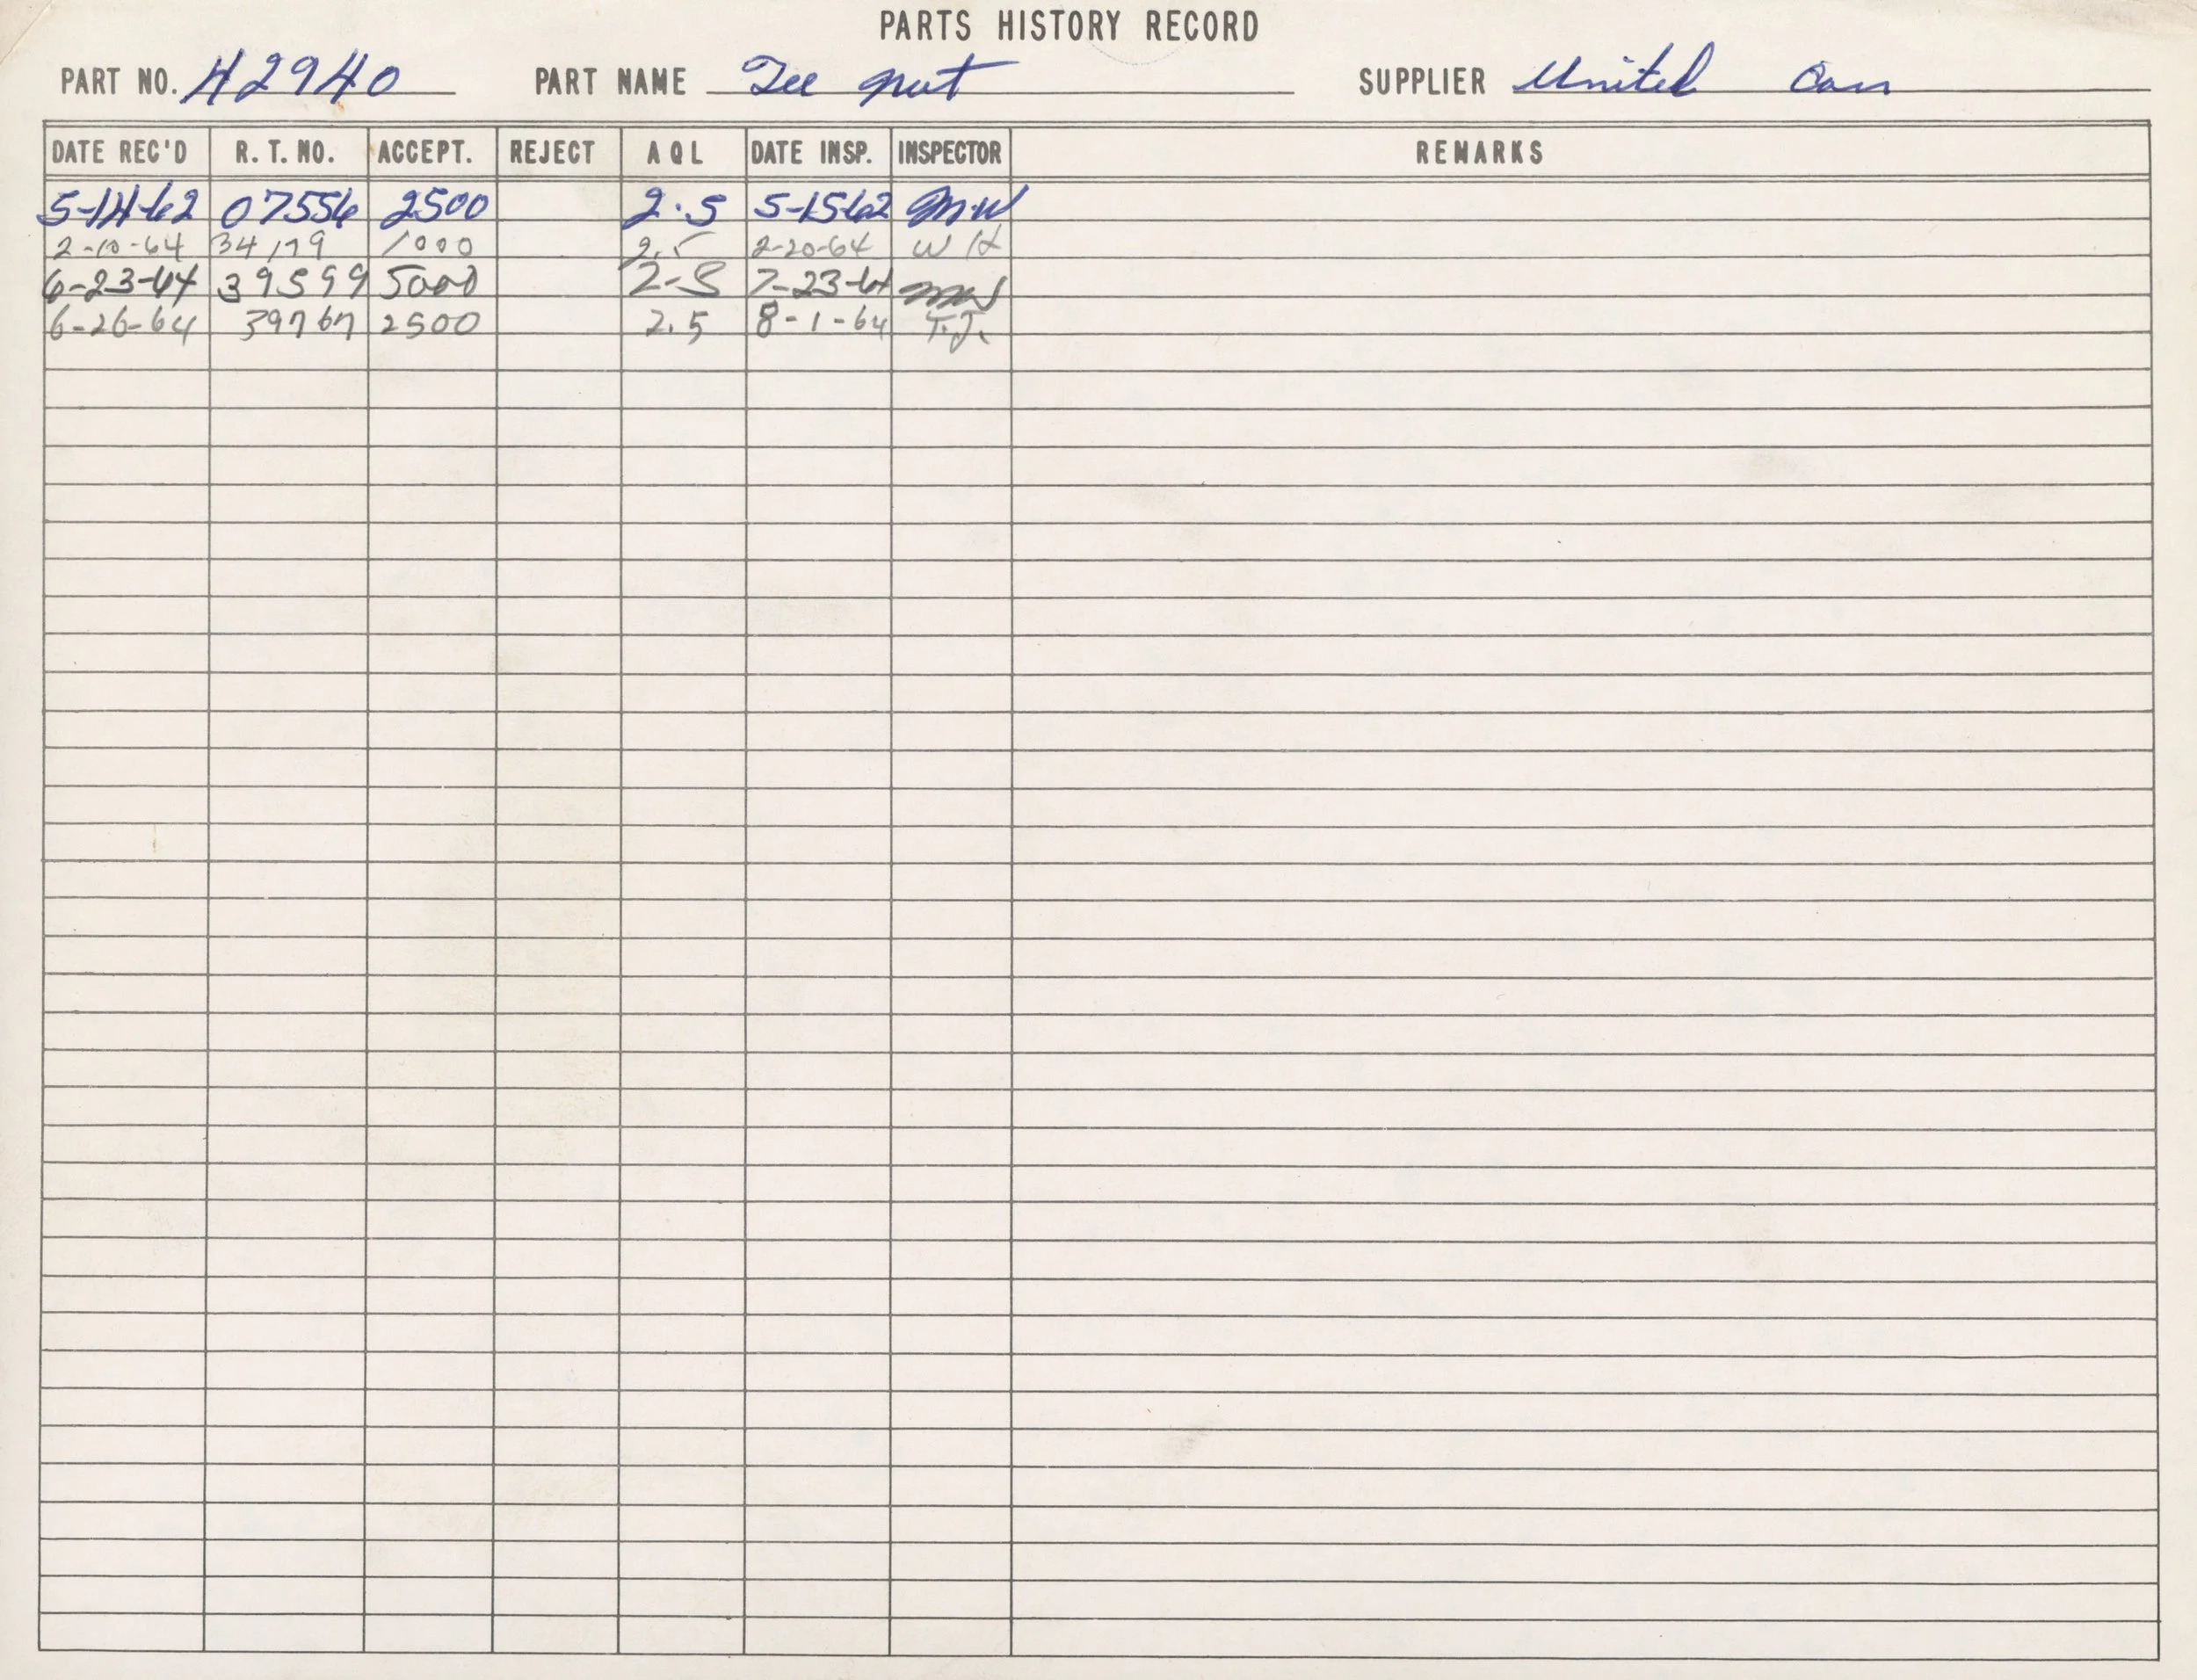 PARTS HISTORY RECORD
PART NO. H2940 PART NAME Tee nut SUPPLIER United Carr
DATE REC'D R. T. NO. ACCEPT. REJECT AQL DATE INSP. INSPECTOR REMARKS
5-14-62 07556 2500 2.5 5-15-62 MW
2-10-64 34179 1000 2.5 2-20-64 WH
6-23-64 39599 5000 2-5 7-23-64 MW
6-26-64 39767 2500 2.5 8-1-64 T.J.